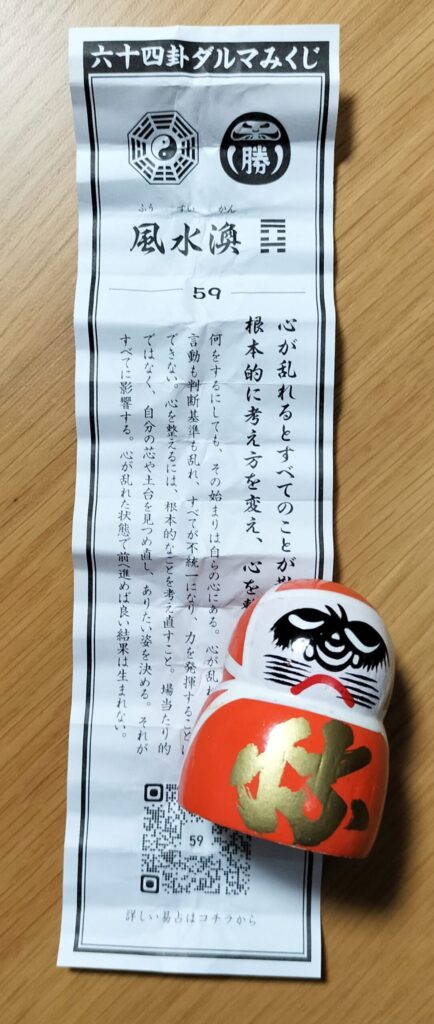 六十四卦ダルマみくじ
勝
ふう すい かん
風水渙
59
心が乱れるとすべてのことが
根本的に考え方を変え、心を
何をするにしても、その始まりは自らの心にある。心が乱れ
言動も判断基準も乱れ、すべてが不統一になり、力を発揮すること
できない。心を整えるには、根本的なことを考え直すこと。場当たり的
ではなく、自分の芯や土台を見つめ直し、ありたい姿を決める。それが
すべてに影響する。心が乱れた状態で前へ進めば良い結果は生まれない。
59
詳しい易占はコチラから